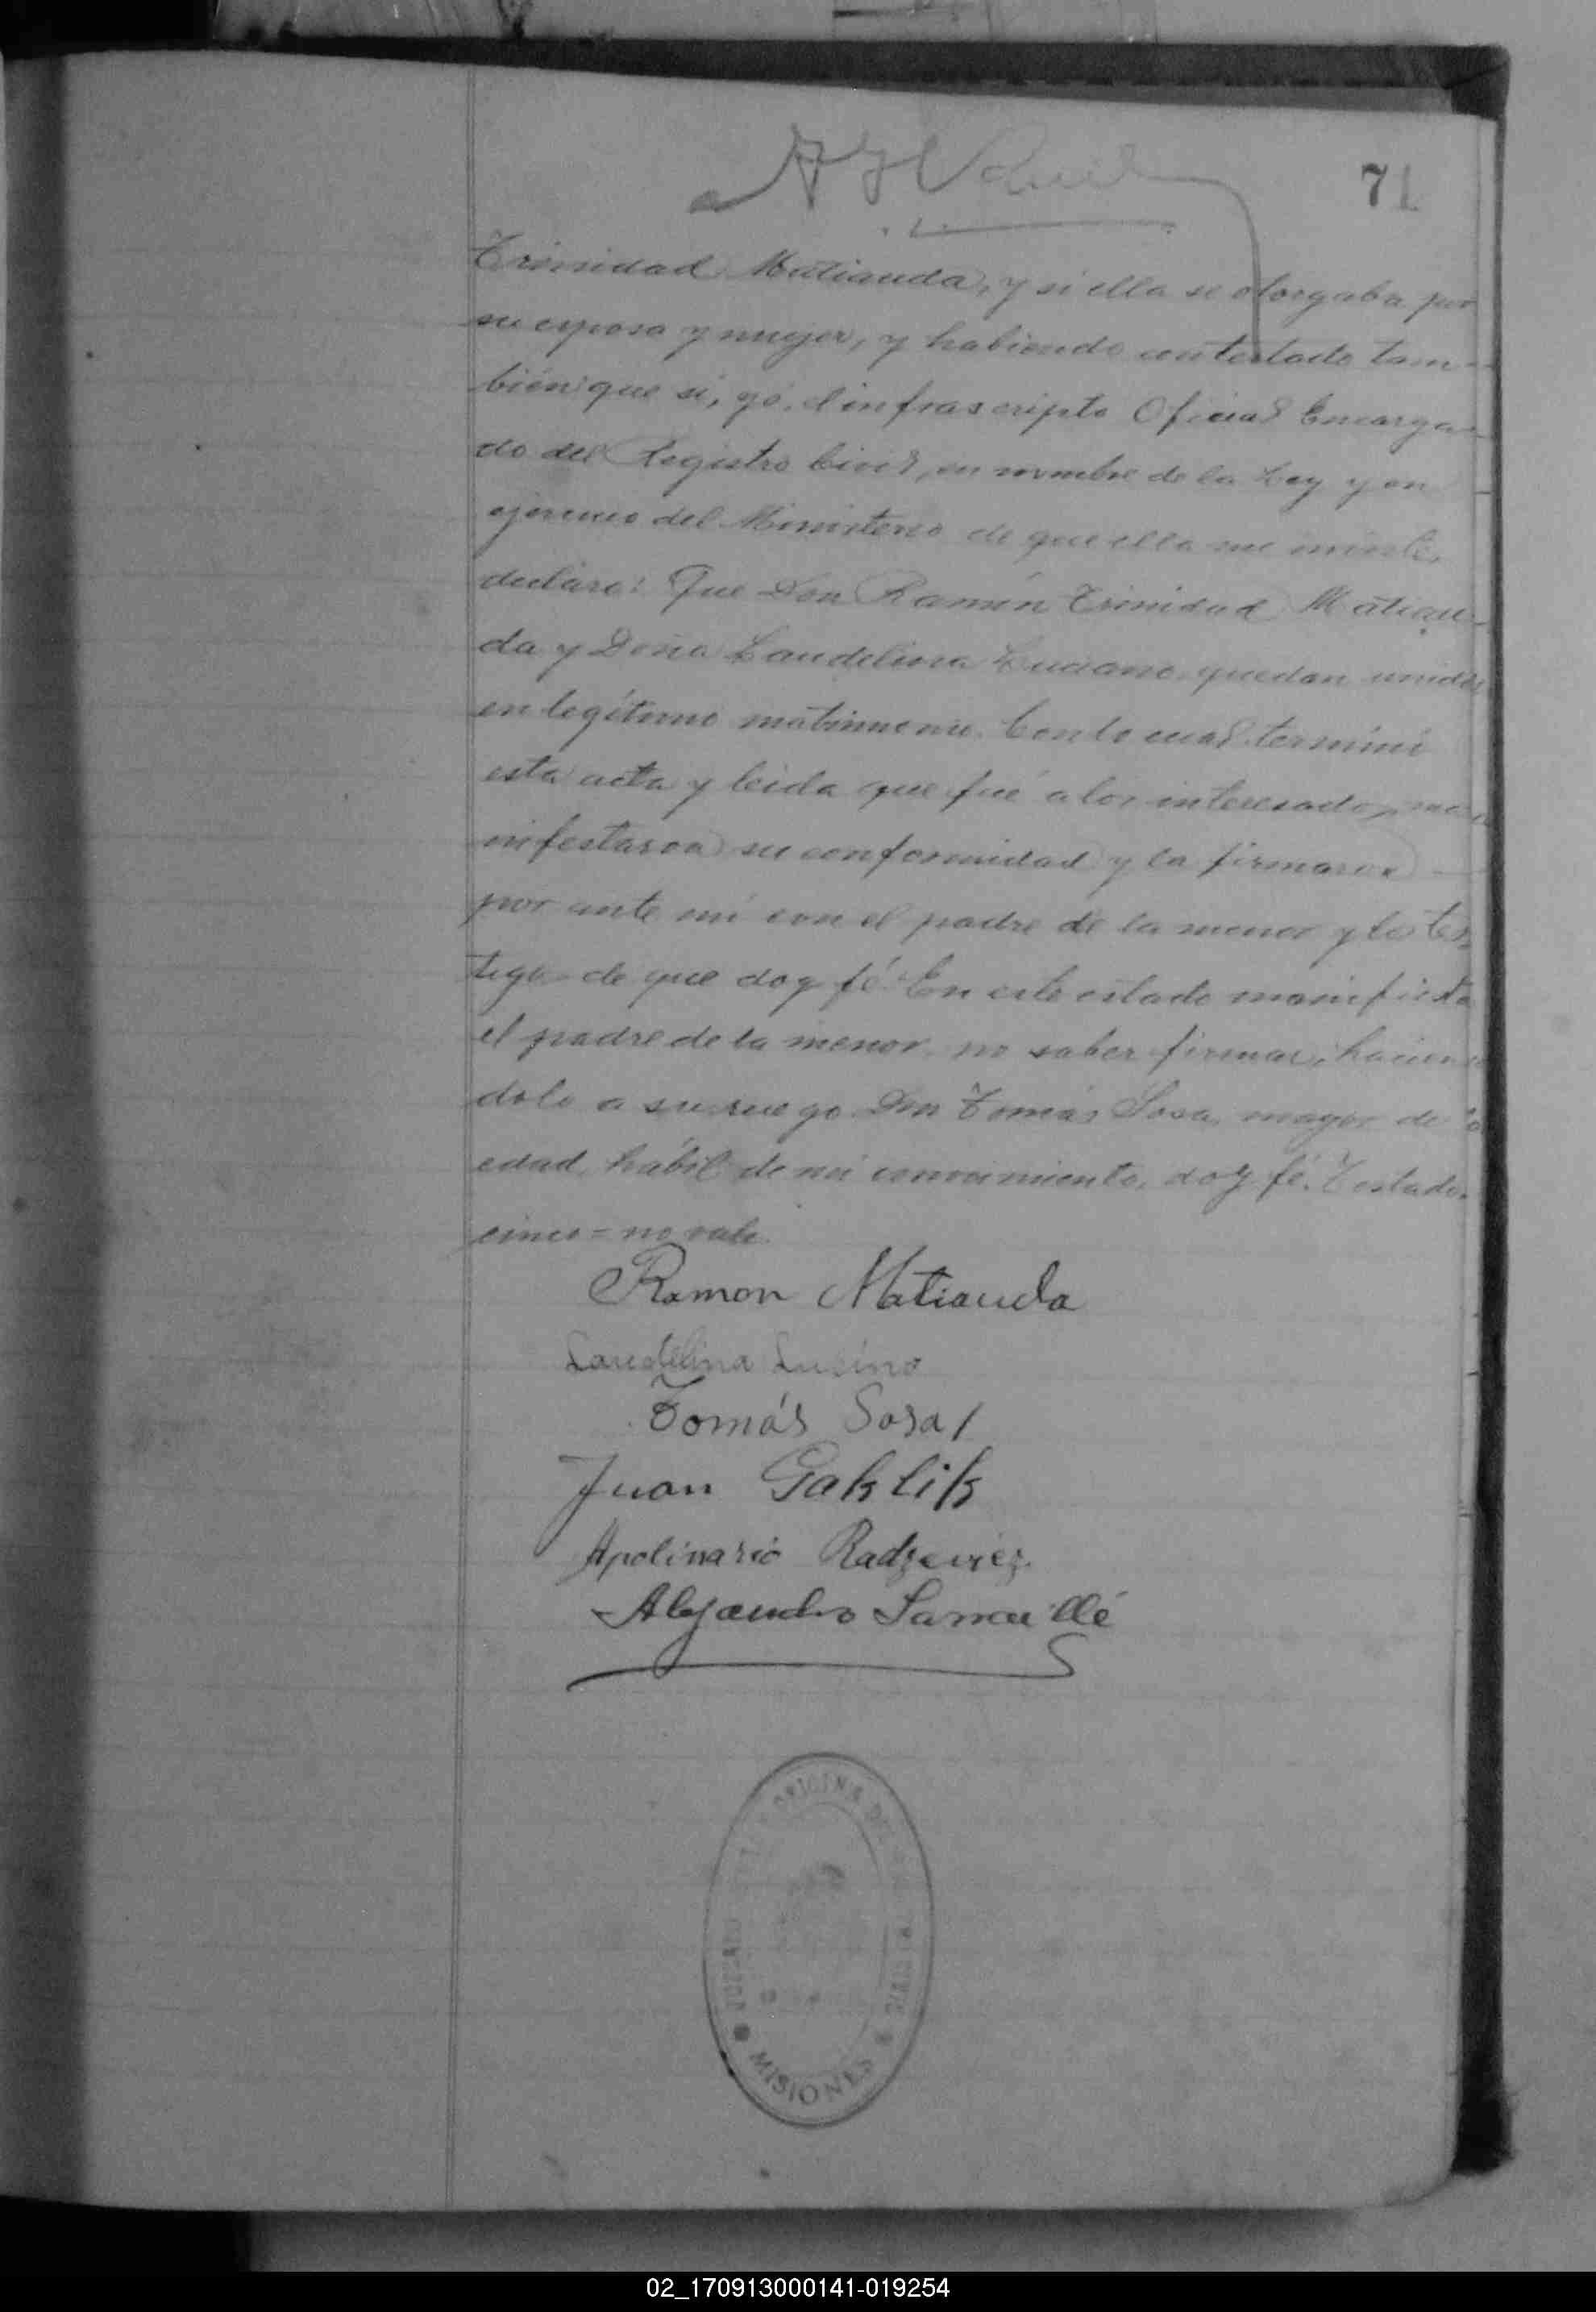 71
Trinidad Matiauda, y si ella se otorgaba por
su esposo y mujer, y habiendo contestado tam-
bién que si, yó, el infrascripto Oficial Encarga-
do del Registro Civil, en nombre de la Ley y en
ejercicio del Ministerio de que ella me inviste,
declaro: Que Don Ramón Trinidad Matiau-
da y Doña Laudelina Luciano, quedan unidos
en legítimo matrimonio. Con lo cual terminó
esta acta y leida que fué a los interesados, ma-
nifestaron su conformidad y la firmaron
por ante mí con el padre de la menor y los tes-
tigos de que doy fé. En este estado manifiesta
el padre de la menor no saber firmar, hacien-
dolo a su ruego Don Tomás Sosa, mayor de
edad, hábil de mi conocimiento, doy fé. Testado:
cinco = no vale.
Ramon Matiauda
Laudelina Lusino
Tomás Sosa
Juan Gaklik
Apolinario Radzeviez
Alejandro Lamaillé
OFICINA DEL
MISIONES
02_170913000141-019254